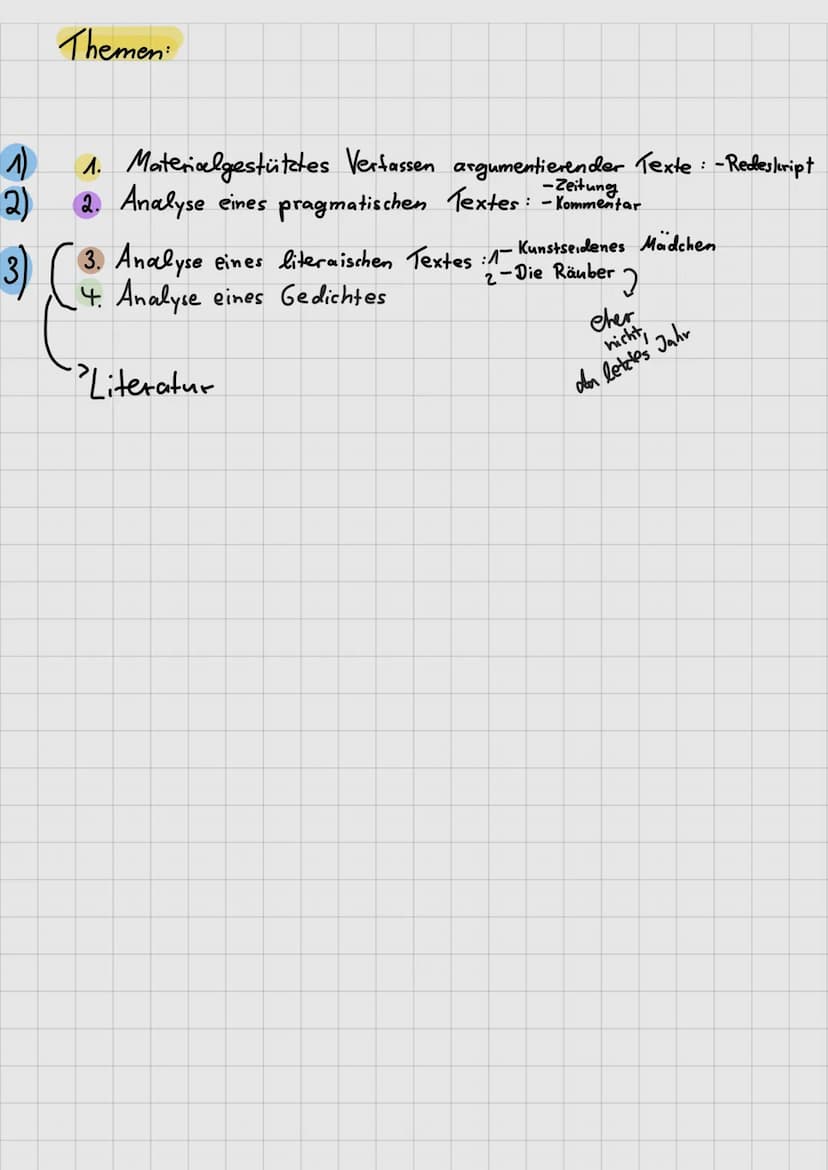 Themen:
1) 1. Materialgestütztes Verfassen argumentierender Texte : - Redeskript
2) 2. Analyse eines pragmatischen Textes : - Zeitung
- Kommentar
3) 3. Analyse eines literaischen Textes : 1 - Kunstseidenes Mädchen
2 - Die Räuber
4. Analyse eines Gedichtes
eher
nicht,
letztes Jahr
> Literatur